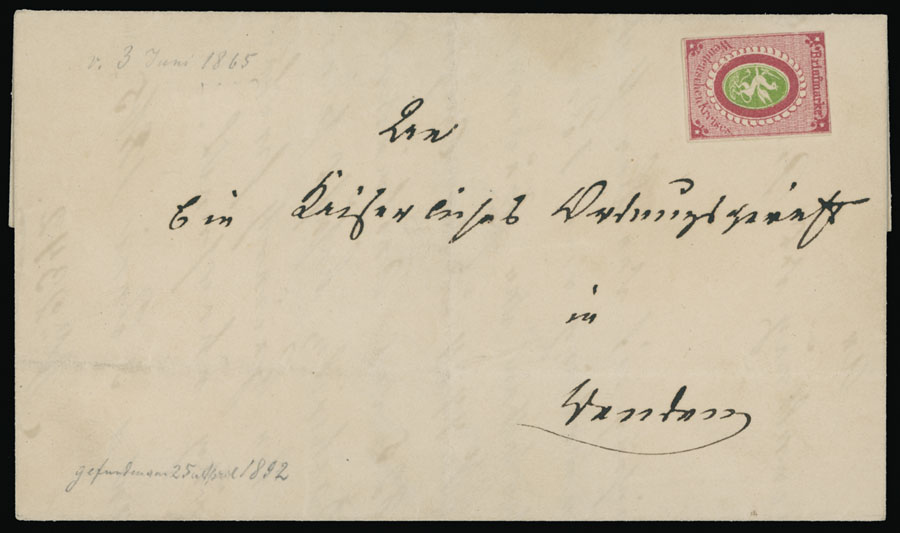 v. 3 Juni 1865
Briefmarke
Wendenschen Kreises
An
Ein Kaiserliches Ordnungsgericht
in
Wenden
gefunden am 25 April 1892